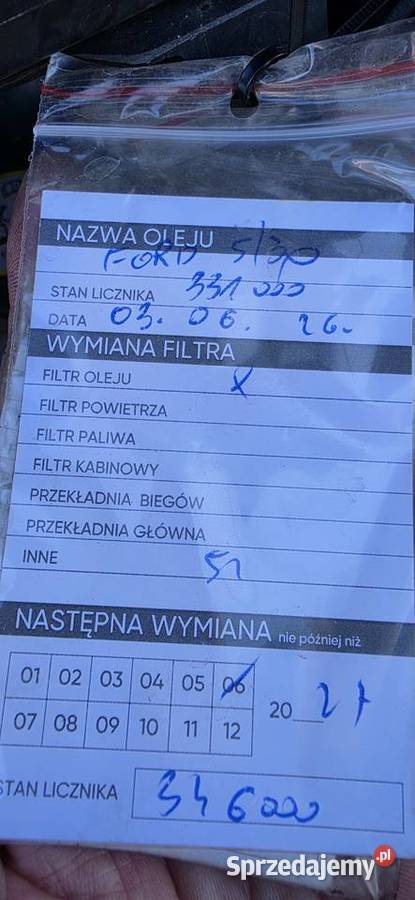 NAZWA OLEJU
FORD 5/30
STAN LICZNIKA 331 000
DATA 03. 06. 26.
WYMIANA FILTRA
FILTR OLEJU X
FILTR POWIETRZA
FILTR PALIWA
FILTR KABINOWY
PRZEKŁADNIA BIEGÓW
PRZEKŁADNIA GŁÓWNA
INNE 5l
NASTĘPNA WYMIANA nie później niż
01 02 03 04 05 06
07 08 09 10 11 12
20 27
STAN LICZNIKA 346000
Sprzedajemy.pl